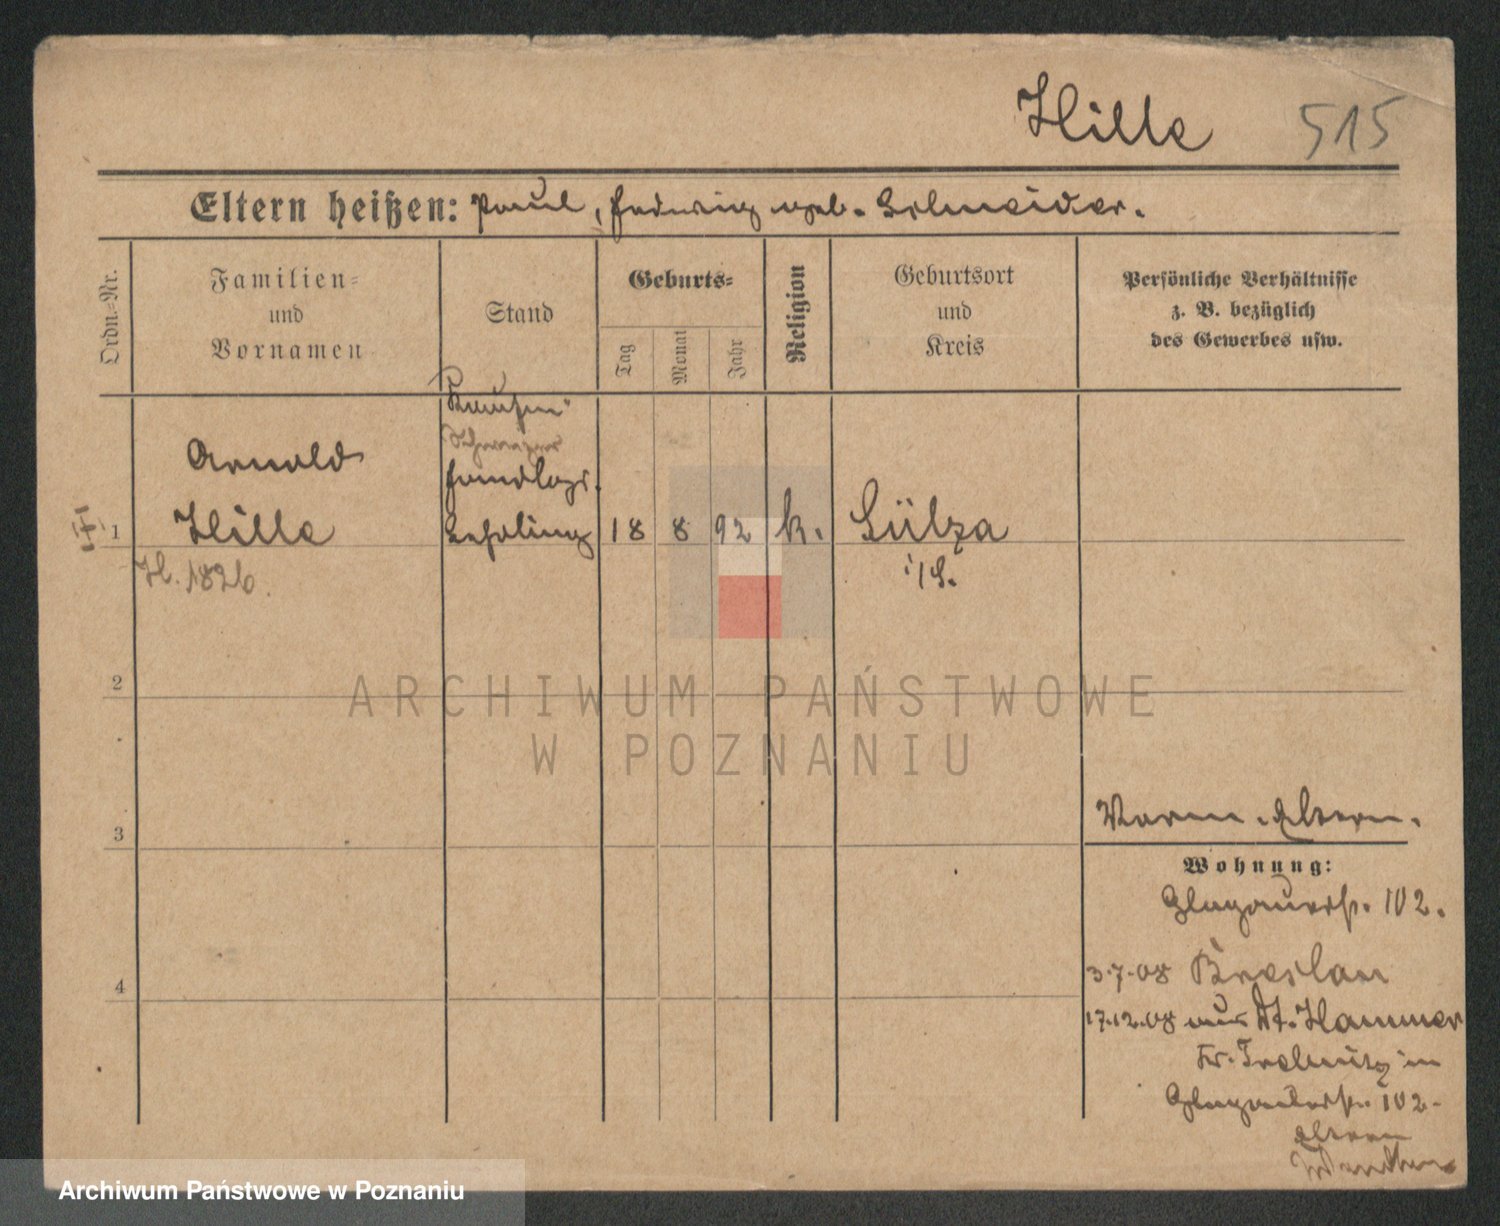 Hille 515
Eltern heißen: Paul, Hedwig geb. Schneider.
Ordn.-Nr.
Familien-
und
Vornamen
Stand
Geburts-
Tag
Monat
Jahr
Religion
Geburtsort
und
Kreis
Persönliche Verhältnisse
z. B. bezüglich
des Gewerbes usw.
Kaufm.
Arnold
Handlgs.
1 Hille Lehrling 18 8 92 k. Sülza
H. 1826. i/S.
2
ARCHIWUM PAŃSTWOWE
W POZNANIU
3
Vorm. Eltern.
Wohnung:
Glogauerstr. 102.
4
3.7.08 Breslau
17.12.08 aus Dt. Hammer
Kr. Trebnitz in
Glogauerstr. 102.
Eltern
Archiwum Państwowe w Poznaniu